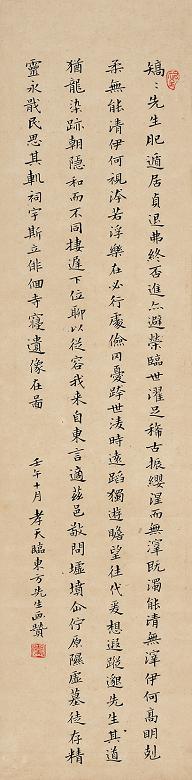 矯〻先生肥遁居貞退弗終否進亦避榮臨世濯足稀古振纓涅而無滓既濁能清無滓伊何高明剋
柔無能清伊何視洿若浮樂在必行處儉罔憂跨世淩時遠蹈獨遊瞻望往代爰想遐蹤邈先生其道
猶龍染跡朝隱和而不同棲遲下位聊以從容我来自東言適茲邑敬問墟墳企佇原隰虛墓徒存精
靈永戢民思其軌祠宇斯立俳佪寺寢遺像在啚
壬午十月 孝天臨東方先生畫贊